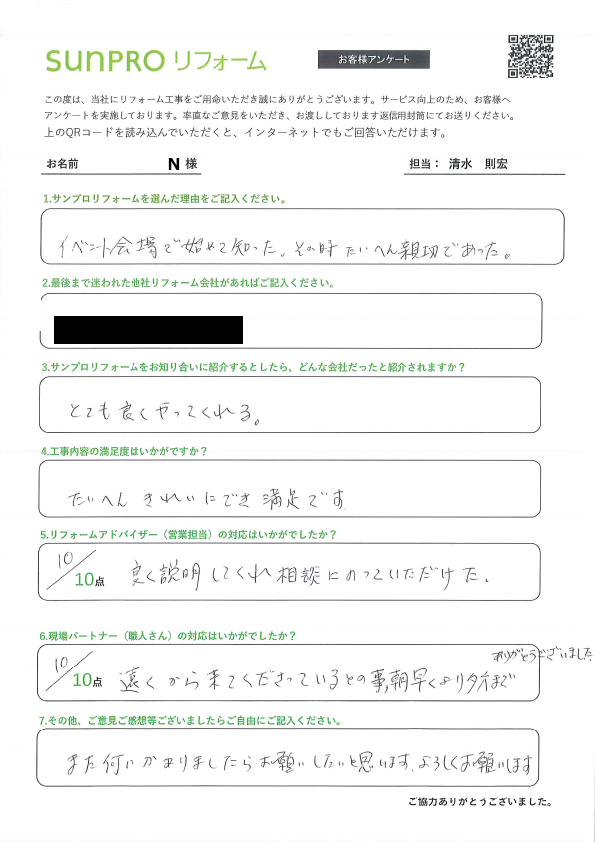 SUNPRO リフォーム
お客様アンケート
この度は、当社にリフォーム工事をご用命いただき誠にありがとうございます。サービス向上のため、お客様へ
アンケートを実施しております。率直なご意見をいただき、お渡ししております返信用封筒にてお送りください。
上のQRコードを読み込んでいただくと、インターネットでもご回答いただけます。
お名前 N 様 担当： 清水 則宏
1.サンプロリフォームを選んだ理由をご記入ください。
イベント会場で始めて知った。その時たいへん親切であった。
2.最後まで迷われた他社リフォーム会社があればご記入ください。
3.サンプロリフォームをお知り合いに紹介するとしたら、どんな会社だったと紹介されますか？
とても良くやってくれる。
4.工事内容の満足度はいかがですか？
たいへん きれいにでき 満足です
5.リフォームアドバイザー（営業担当）の対応はいかがでしたか？
10/10点 良く説明してくれ相談にのっていただけた。
6.現場パートナー（職人さん）の対応はいかがでしたか？
ありがとうございました
10/10点 遠くから来てくださっているとの事、朝早くより夕方まで
7.その他、ご意見ご感想等ございましたらご自由にご記入ください。
また何かかありましたらお願いしたいと思います。よろしくお願いします
ご協力ありがとうございました。